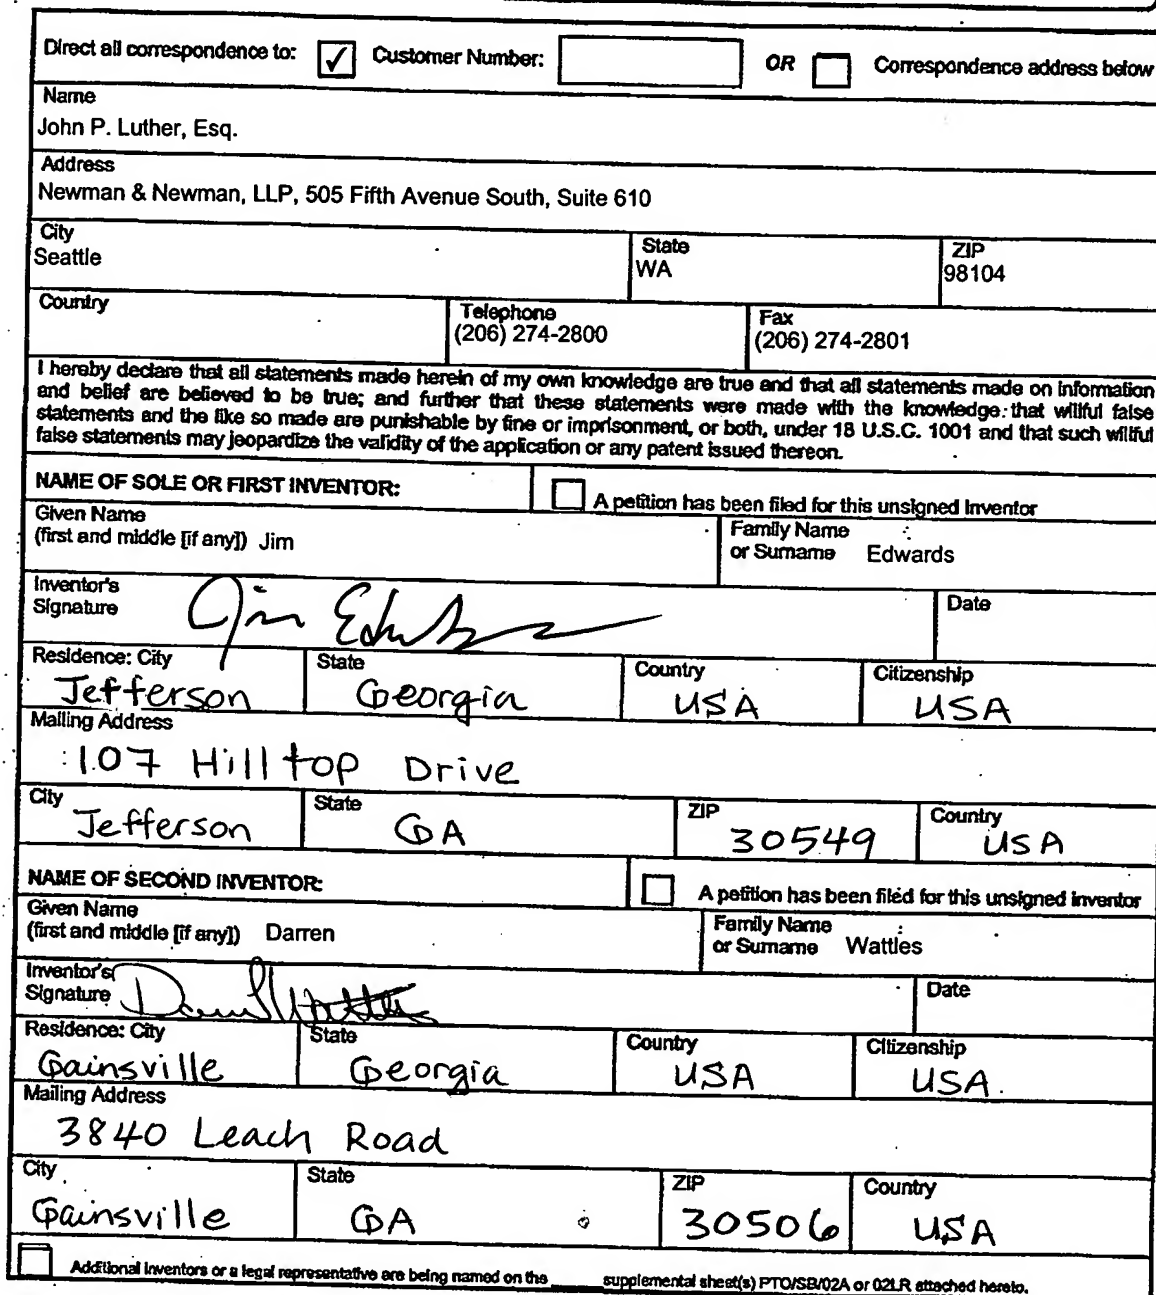 Direct all correspondence to: ✓ Customer Number: OR Correspondence address below
Name
John P. Luther, Esq.
Address
Newman & Newman, LLP, 505 Fifth Avenue South, Suite 610
City State ZIP
Seattle WA 98104
Country Telephone Fax
(206) 274-2800 (206) 274-2801
I hereby declare that all statements made herein of my own knowledge are true and that all statements made on information
and belief are believed to be true; and further that these statements were made with the knowledge that willful false
statements and the like so made are punishable by fine or imprisonment, or both, under 18 U.S.C. 1001 and that such willful
false statements may jeopardize the validity of the application or any patent issued thereon.
NAME OF SOLE OR FIRST INVENTOR: A petition has been filed for this unsigned Inventor
Given Name Family Name
(first and middle [if any]) Jim or Surname Edwards
Inventor's Date
Signature Jim Edwards
Residence: City State Country Citizenship
Jefferson Georgia USA USA
Mailing Address
107 Hilltop Drive
City State ZIP Country
Jefferson GA 30549 USA
NAME OF SECOND INVENTOR: A petition has been filed for this unsigned inventor
Given Name Family Name
(first and middle [if any]) Darren or Surname Wattles
Inventor's Date
Signature Darren Wattles
Residence: City State Country Citizenship
Gainsville Georgia USA USA.
Mailing Address
3840 Leach Road
City State ZIP Country
Gainsville GA 30506 USA
Additional inventors or a legal representative are being named on the ____ supplemental sheet(s) PTO/SB/02A or 02LR attached hereto.